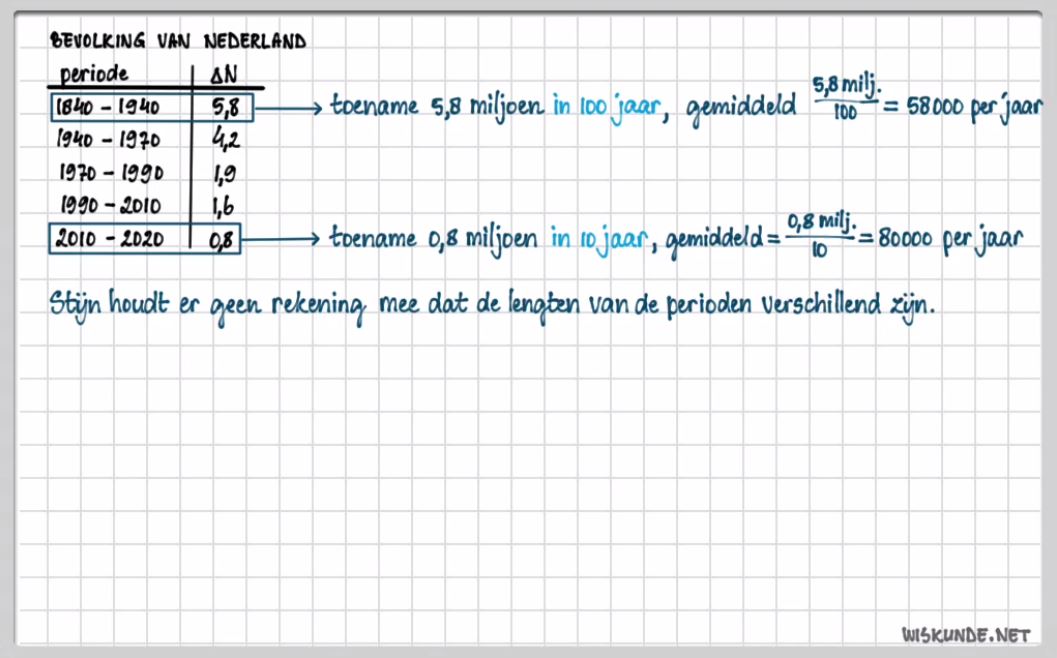 BEVOLKING VAN NEDERLAND
periode ΔN
1840 - 1940 5,8 → toename 5,8 miljoen in 100 jaar, gemiddeld 5,8 milj./100 = 58000 per jaar
1940 - 1970 4,2
1970 - 1990 1,9
1990 - 2010 1,6
2010 - 2020 0,8 → toename 0,8 miljoen in 10 jaar, gemiddeld = 0,8 milj./10 = 80000 per jaar
Stijn houdt er geen rekening mee dat de lengten van de perioden verschillend zijn.
WISKUNDE.NET